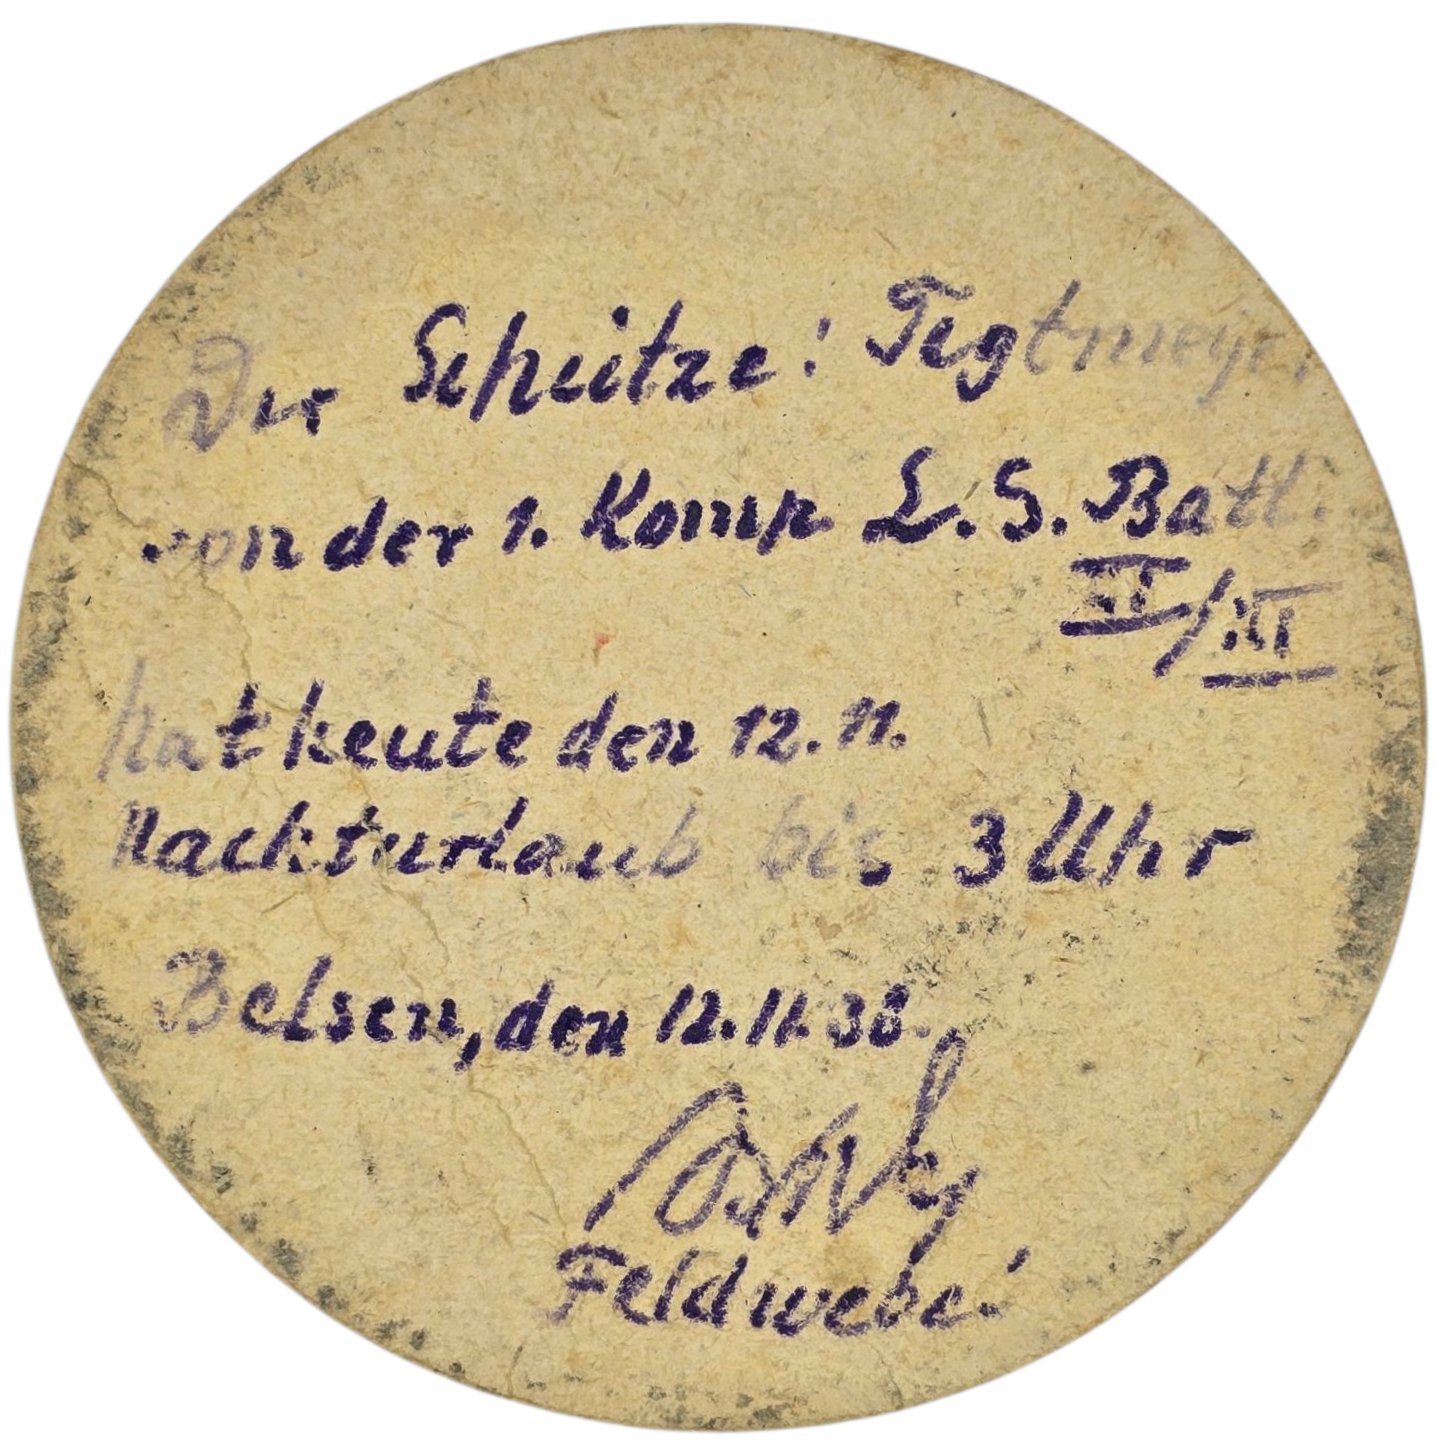 Der Schütze: Tegtmeyer
von der 1. Komp L. S. Batl.
XI/III
hat heute den 12. 11.
Nachturlaub bis 3 Uhr
Belsen, den 12.11.38.
Feldwebel